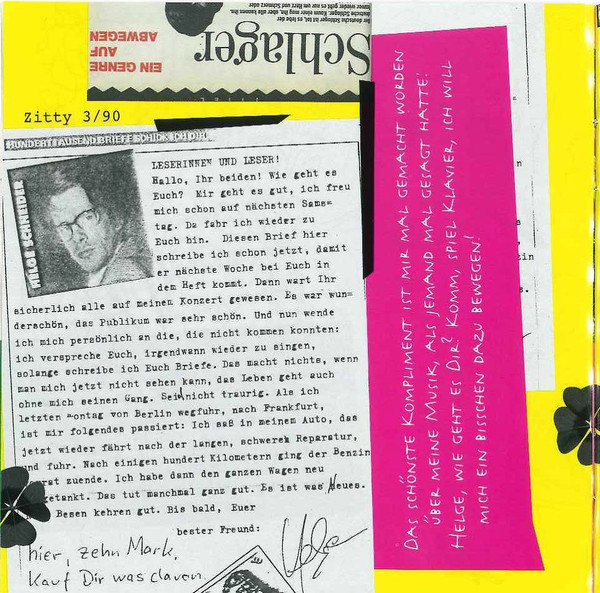 der deutsche Schlager ist tot, es lebe der
deutsche Schlager. Kaum einer mag ihn, aber alle kennen ihn.
immer wieder geht es nur um Herz und Schmerz oder
Schlager
EIN GENRE
AUF
ABWEGEN
Zitty 3/90
HUNDERTTAUSEND BRIEFE SCHICK ICH DIR
HELGE SCHNEIDER
LESERINNEN UND LESER!
Hallo, Ihr beiden! Wie geht es
Euch? Mir geht es gut, ich freu
mich schon auf nächsten Sams=
tag. Da fahr ich wieder zu
Euch hin. Diesen Brief hier
schreibe ich schon jetzt, damit
er nächste Woche bei Euch in
dem Heft kommt. Dann wart Ihr
sicherlich alle auf meinen Konzert gewesen. Es war wun=
derschön, das Publikum war sehr schön. Und nun wende
ich mich persönlich an die, die nicht kommen konnten:
ich verspreche Euch, irgendwann wieder zu singen,
solange schreibe ich Euch Briefe. Das macht nichts, wenn
man mich jetzt nicht sehen kann, das Leben geht auch
ohne mich seinen Gang. Seid nicht traurig. Als ich
letzten montag von Berlin wegfuhr, nach Frankfurt,
ist mir folgendes passiert: Ich saß in meinem Auto, das
jetzt wieder fährt nach der langen, schweren Reparatur,
und fuhr. Nach einigen hundert Kilometern ging der Benzin
rat zuende. Ich habe dann den ganzen Wagen neu
getankt. Das tut manchmal ganz gut. Es ist was Neues.
Besen kehren gut. Bis bald, Euer
bester Freund:
Helge
hier, zehn Mark,
kauf Dir was davon.
DAS SCHÖNSTE KOMPLIMENT IST MIR MAL GEMACHT WORDEN
ÜBER MEINE MUSIK, ALS JEMAND MAL GESAGT HATTE:
HELGE, WIE GEHT ES DIR? KOMM, SPIEL KLAVIER, ICH WILL
MICH EIN BISSCHEN DAZU BEWEGEN!